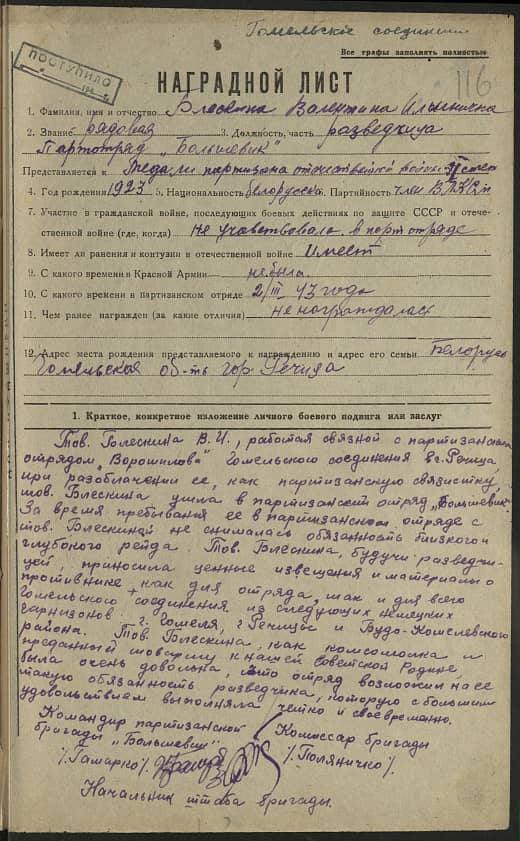 Гомельское соединен
Все графы заполнять полностью
ПОСТУПИЛО
116
НАГРАДНОЙ ЛИСТ
1. Фамилия, имя и отчество Блескина Валентина Ильинична
2. Звание рядовая 3. Должность, часть разведчица
Партотряд „Большевик"
Представляется к медали партизана отечественной войны II степ
4. Год рождения 1923 5. Национальность белорусска 6. Партийность член ВЛКСМ
7. Участие в гражданской войне, последующих боевых действиях по защите СССР и отече-
ственной войне (где, когда) не участвовала в парт отряде
8. Имеет ли ранения и контузии в отечественной войне Имеет
9. С какого времени в Красной Армии не была.
10. С какого времени в партизанском отряде 2/III 43 года
11. Чем ранее награжден (за какие отличия) не награждалась
12. Адрес места рождения представляемого к награждению и адрес его семьи Белорусь
Гомельская об-ть гор. Речица
1. Краткое, конкретное изложение личного боевого подвига или заслуг
Тов. Блескина В.И., работая связной с партизанским
отрядом „Ворошилова" Гомельского соединения в г. Речица,
при разоблачении ее, как партизанскую связистку,
тов. Блескина ушла в партизанский отряд „Большевик".
За время пребывания ее в партизанском отряде с
тов. Блескиной не снималась обязанность близкого и
глубокого рейда. Тов. Блескина, будучи разведчи-
цей, приносила ценные извещения и материалы о
противнике как для отряда, так и для всего
Гомельского соединения из следующих немецких
гарнизонов: г. Гомеля, г. Речицы и Будо-Кошелевского
района. Тов. Блескина, как комсомолка и
преданный товарищ к нашей Советской Родине,
была очень довольна, что отряд возложил на ее
такую обязанность разведчика, которую с большим
удовольствием выполняла четко и своевременно.
Командир партизанской
бригады „Большевик"
/Гамарко/.
Комиссар бригады
/Поляничко/.
Начальник штаба бригады.